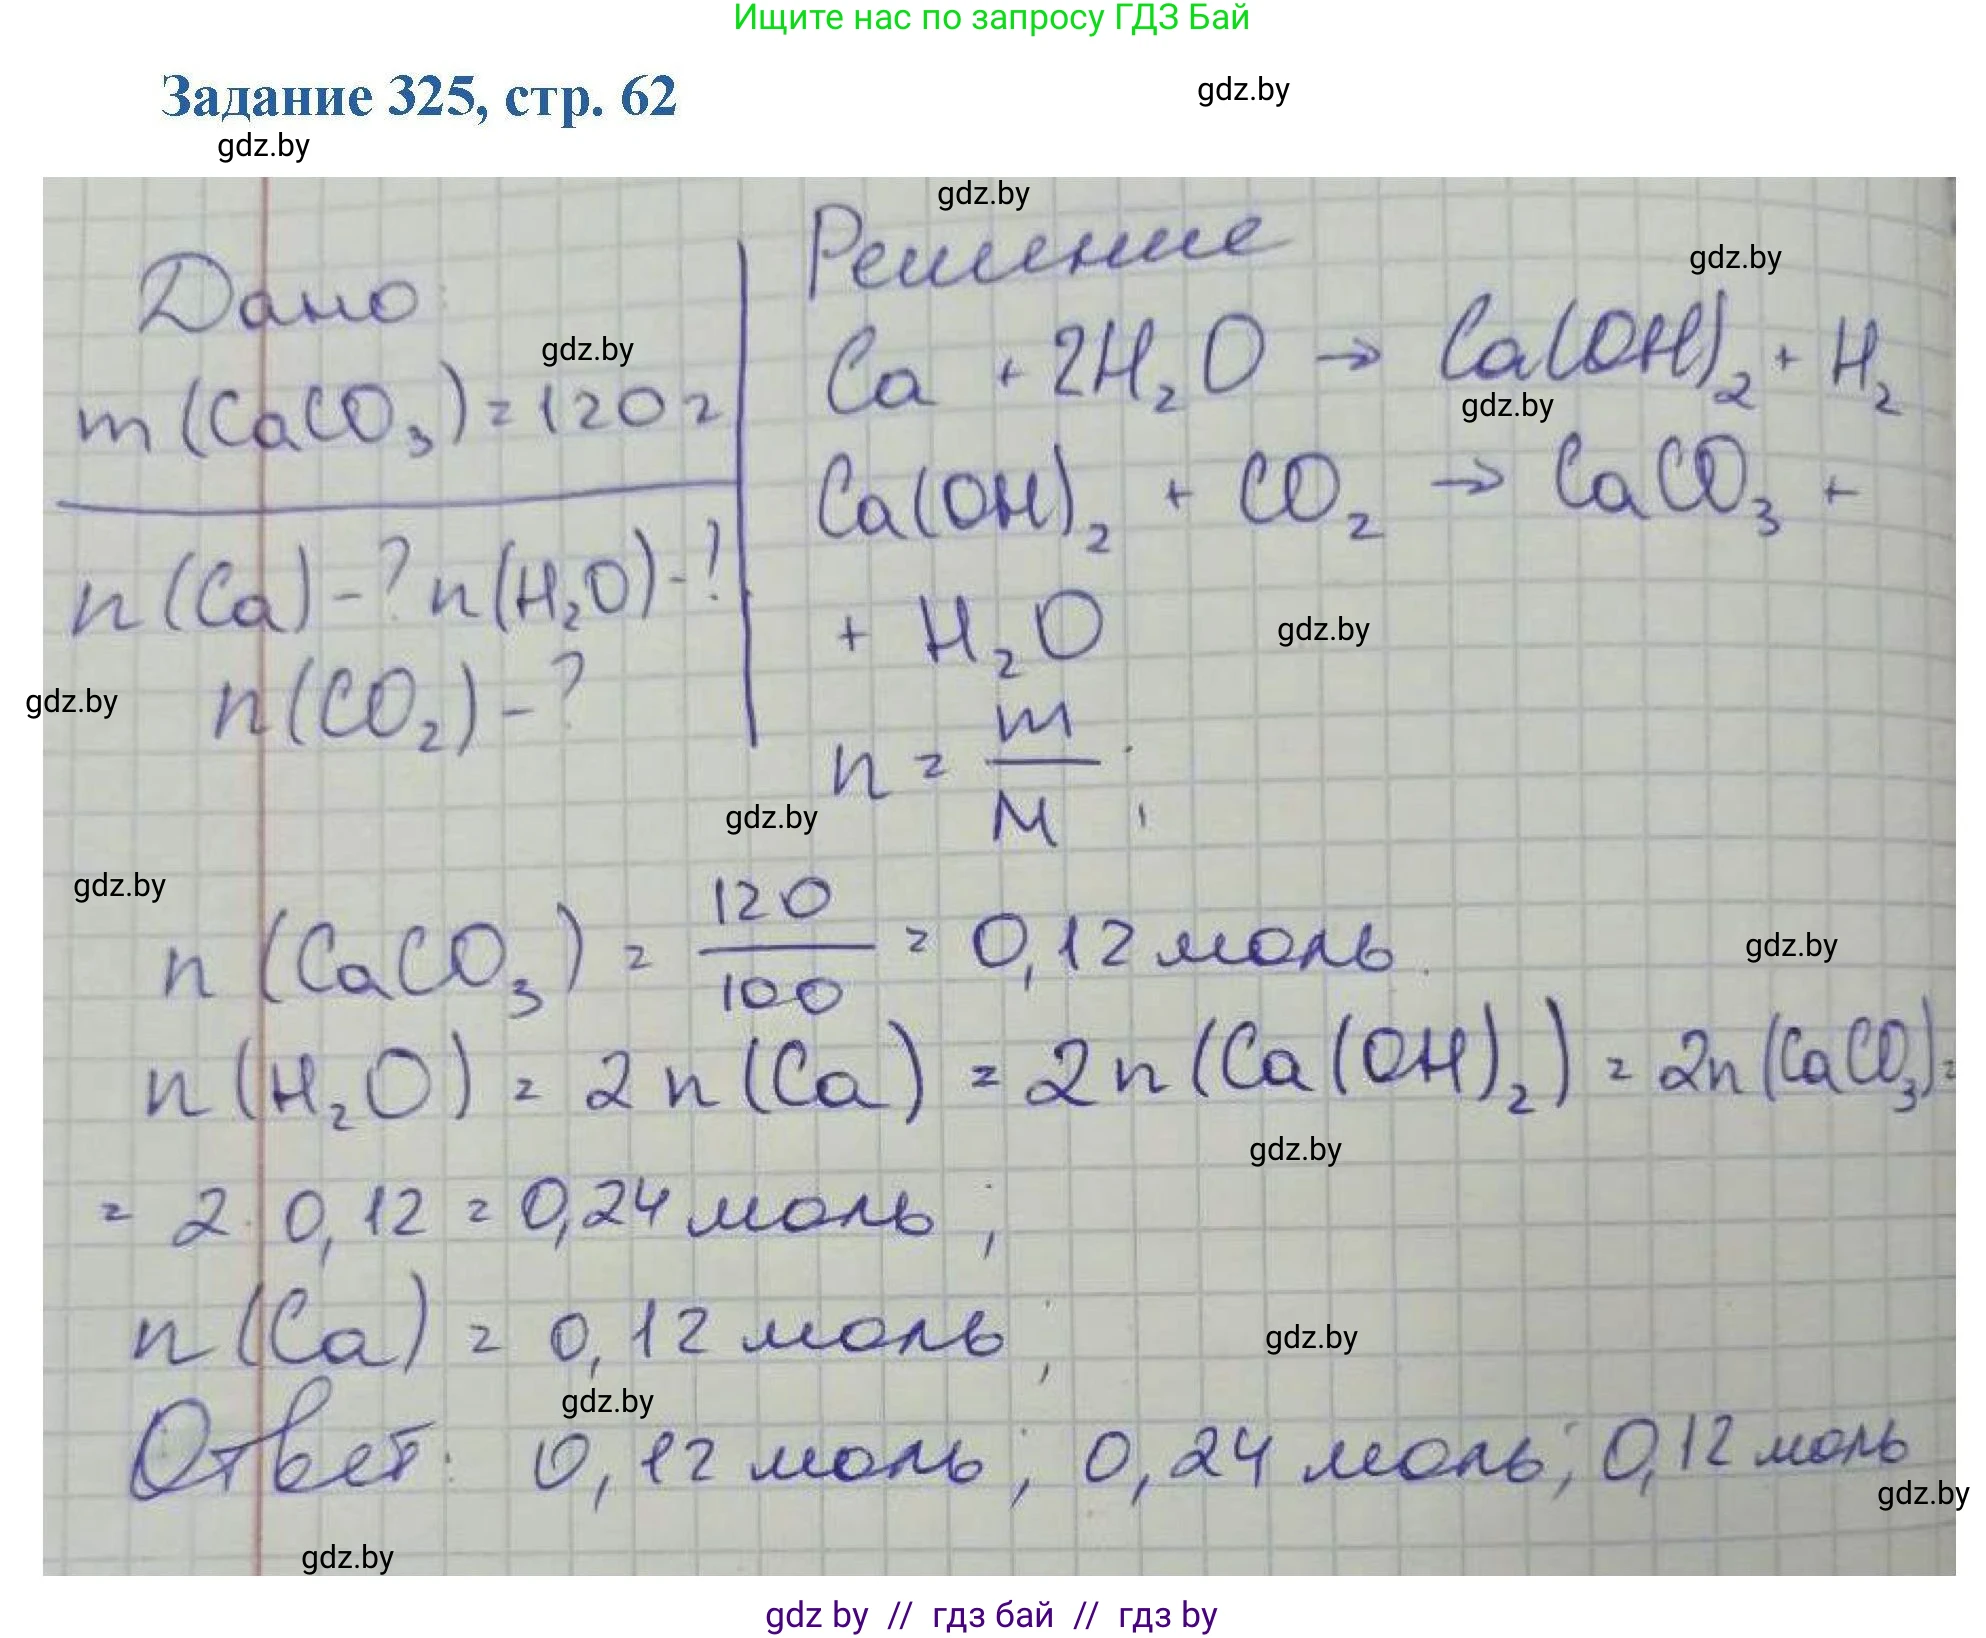 Ищите нас по запросу ГДЗ Бай
Задание 325, стр. 62
gdz.by
gdz.by
gdz.by
Дано:
m(CaCO₃)=120 г
n(Ca)-? n(H₂O)-?
n(CO₂)-?
Решение
gdz.by
gdz.by
Ca + 2H₂O → Ca(OH)₂ + H₂
gdz.by
Ca(OH)₂ + CO₂ → CaCO₃ +
+ H₂O
gdz.by
gdz.by
n = m/M;
gdz.by
gdz.by
n(CaCO₃) = 120/100 = 0,12 моль.
gdz.by
n(H₂O) = 2n(Ca) = 2n(Ca(OH)₂) = 2n(CaCO₃)=
gdz.by
= 2·0,12 = 0,24 моль;
n(Ca) = 0,12 моль;
gdz.by
gdz.by
Ответ: 0,12 моль; 0,24 моль; 0,12 моль
gdz.by
gdz.by
gdz by // гдз бай // гдз by